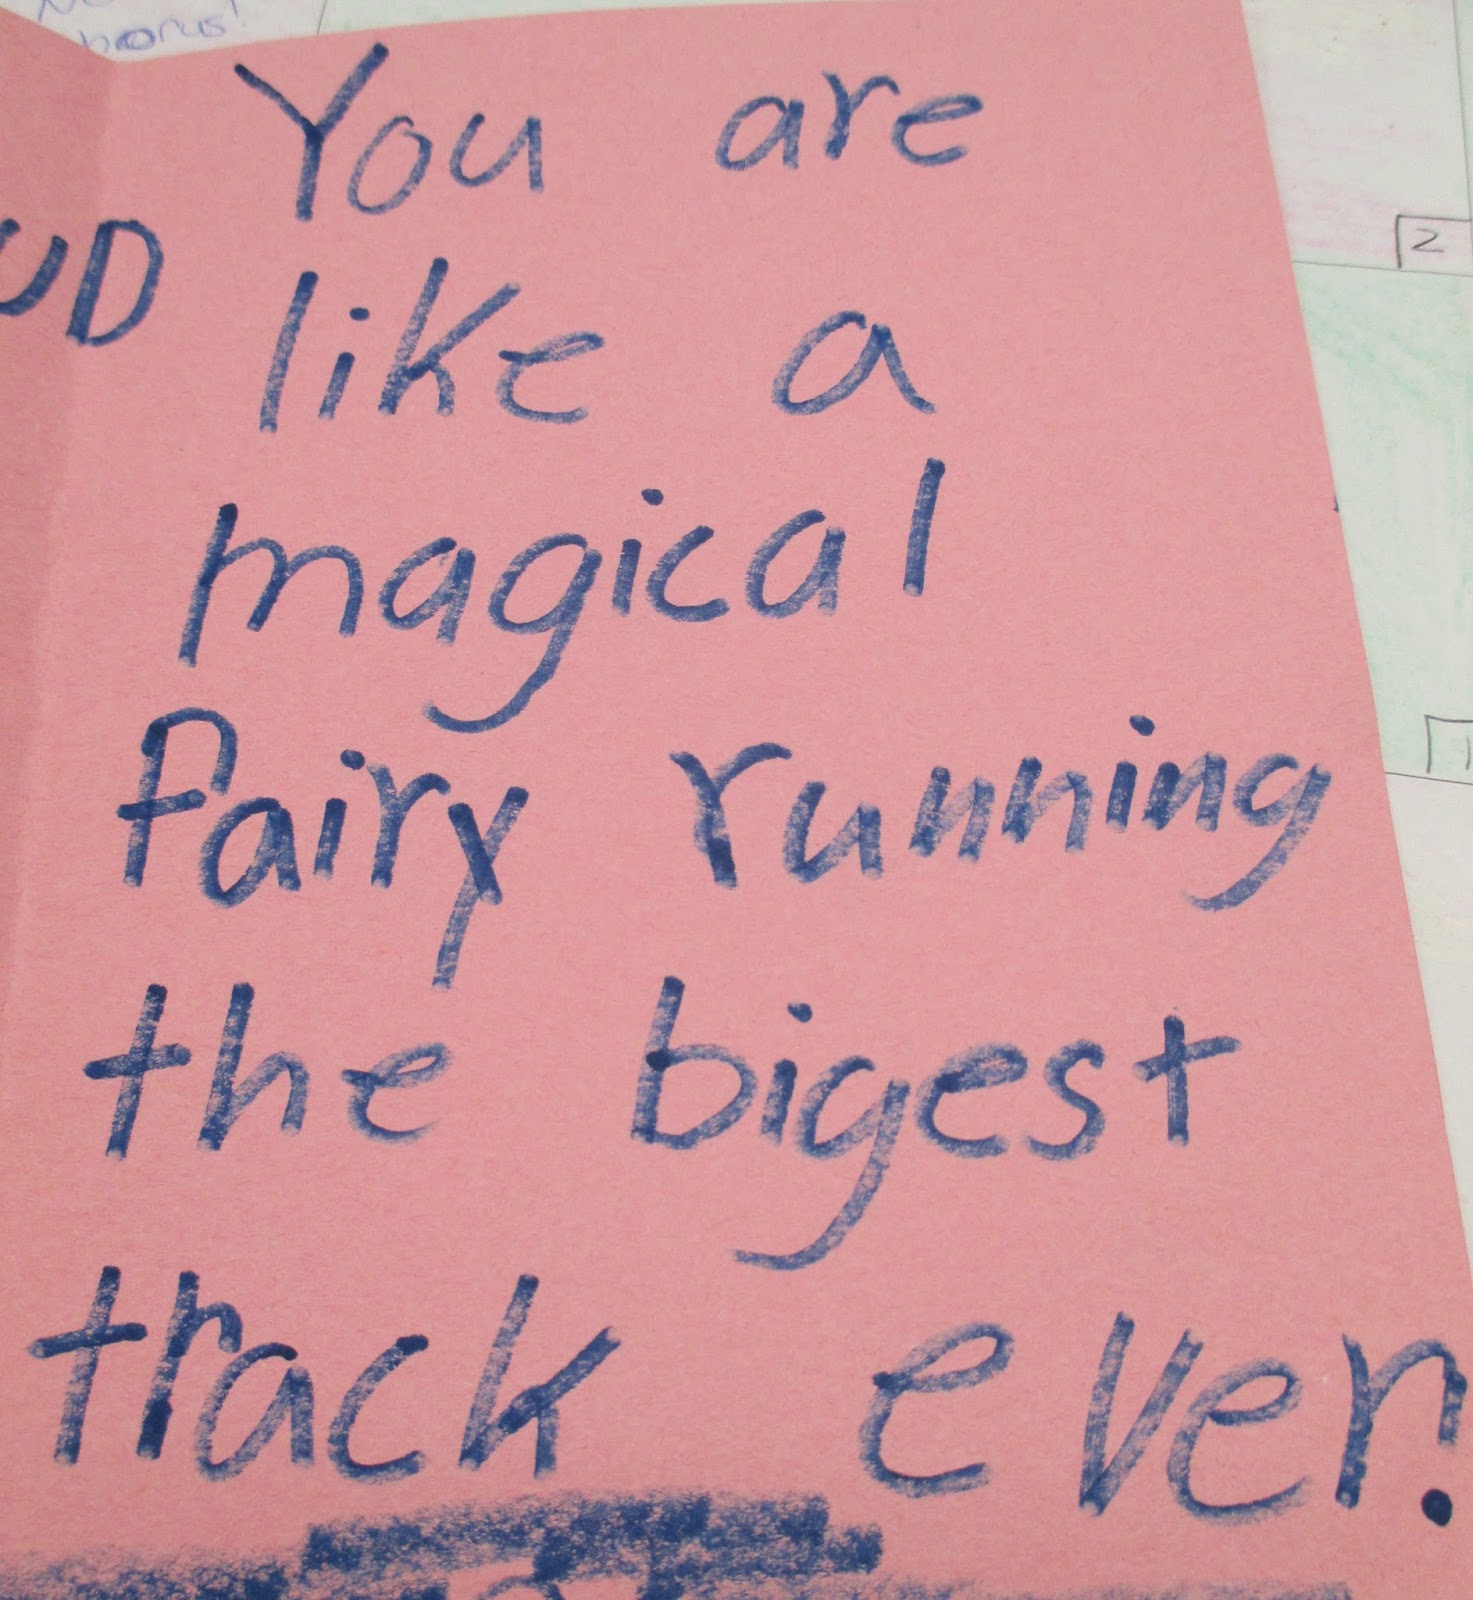 You are
like a
magical
fairy running
the bigest
track ever.
UD
horus!
2
1